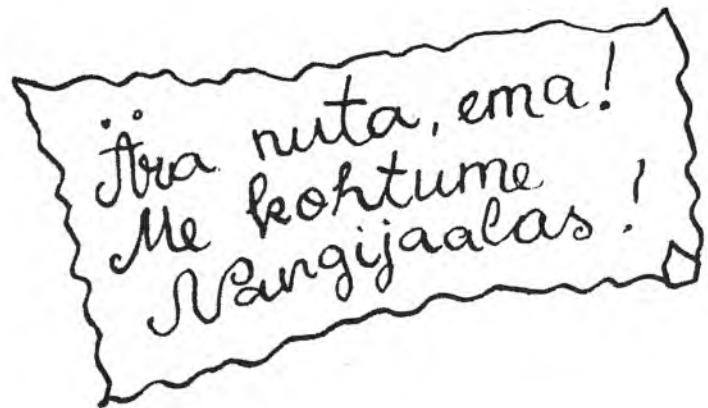 Ära nuta, ema!
Me kohtume
Nangijaalas!